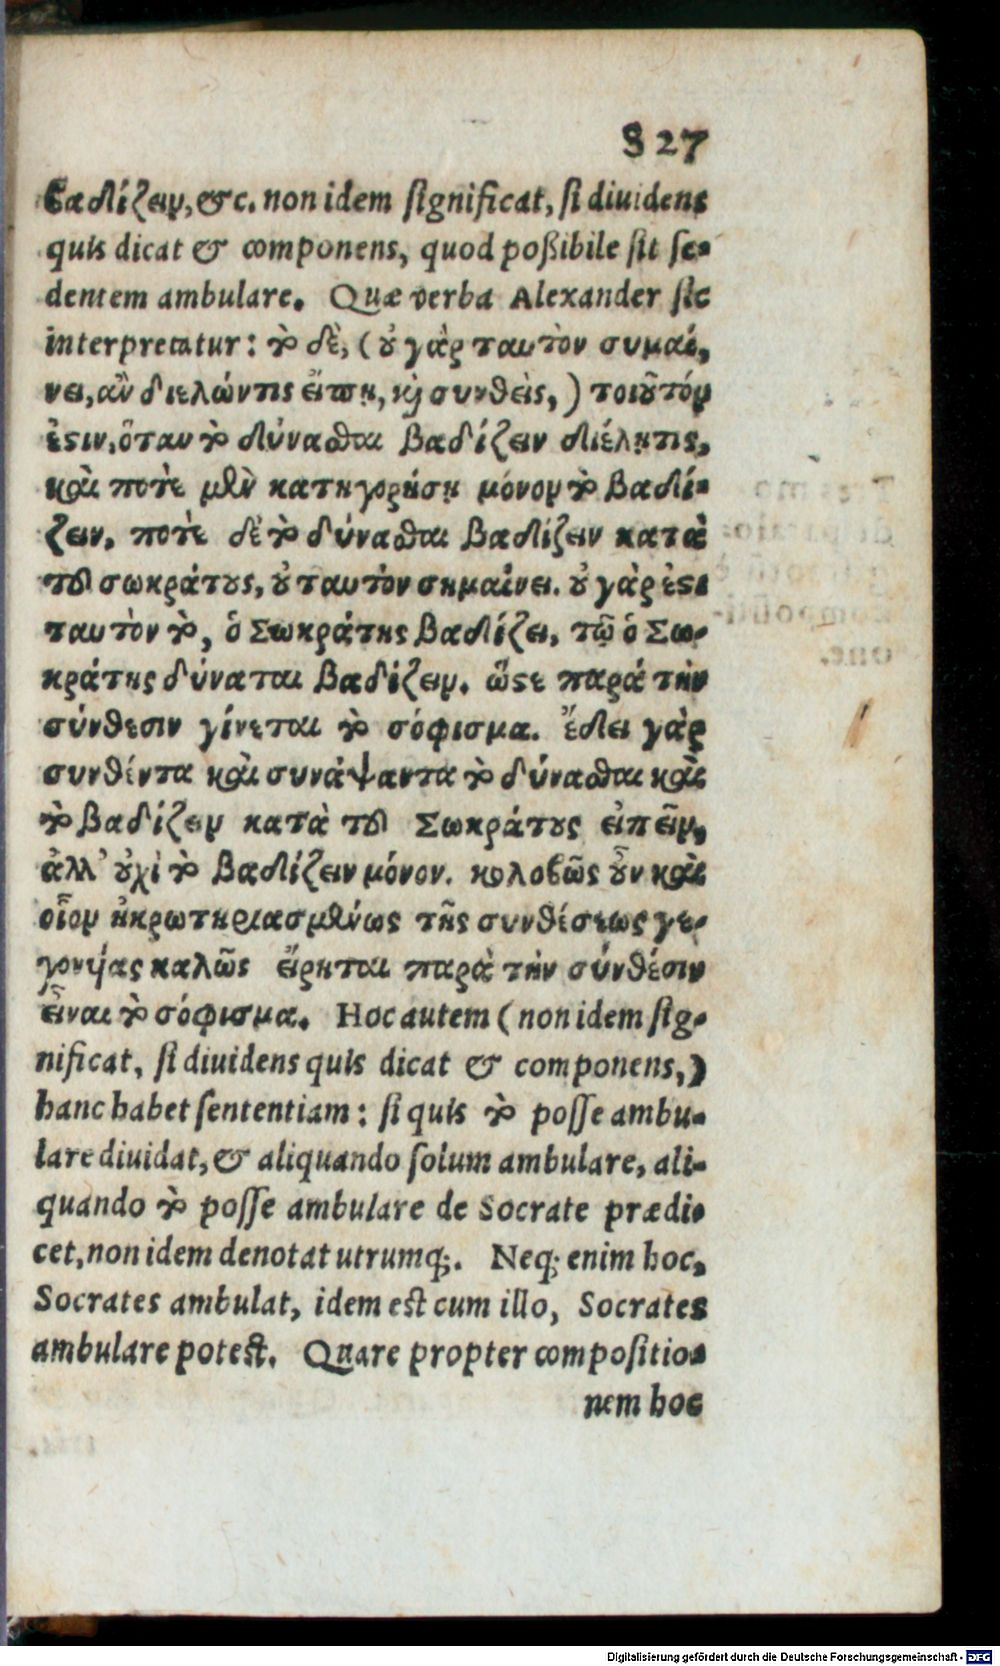 827
βαδίζειν, &c. non idem significat, si diuidens
quis dicat & componens, quod poßibile sit se-
dentem ambulare. Quæ verba Alexander sic
interpretatur: τὸ δὲ, (οὐ γὰρ ταυτὸν συμαί,
νει, ἂν διελών τις εἴπῃ, καὶ συνθεὶς,) τοιοῦτόν
ἐστιν, ὅταν τὸ δύνασθαι βαδίζειν διέλῃ τις,
καὶ ποτὲ μὲν κατηγορήσῃ μόνον τὸ βαδί-
ζειν, ποτὲ δὲ τὸ δύνασθαι βαδίζειν κατὰ
τοῦ σωκράτους, οὐ ταυτὸν σημαίνει. οὐ γὰρ ἐστι
ταυτὸν τὸ, ὁ Σωκράτης βαδίζει, τῷ ὁ Σω-
κράτης δύναται βαδίζειν. ὥστε παρὰ τὴν
σύνθεσιν γίνεται τὸ σόφισμα. ἔδει γὰρ
συνθέντα καὶ συνάψαντα τὸ δύνασθαι καὶ
τὸ βαδίζειν κατὰ τοῦ Σωκράτους εἰπεῖν,
ἀλλ' οὐχὶ τὸ βαδίζειν μόνον. κολοβῶς οὖν καὶ
οἷον ἠκρωτηριασμένως τῆς συνθέσεως γε-
γονυίας καλῶς εἴρηται παρὰ τὴν σύνθεσιν
εἶναι τὸ σόφισμα. Hoc autem (non idem sig-
nificat, si diuidens quis dicat & componens,)
hanc habet sententiam: si quis τὸ posse ambu-
lare diuidat, & aliquando solum ambulare, ali-
quando τὸ posse ambulare de Socrate prædi-
cet, non idem denotat utrumq;. Neq; enim hoc,
Socrates ambulat, idem est cum illo, Socrates
ambulare potest. Quare propter compositio-
nem hoc
Digitalisierung gefördert durch die Deutsche Forschungsgemeinschaft - DFG